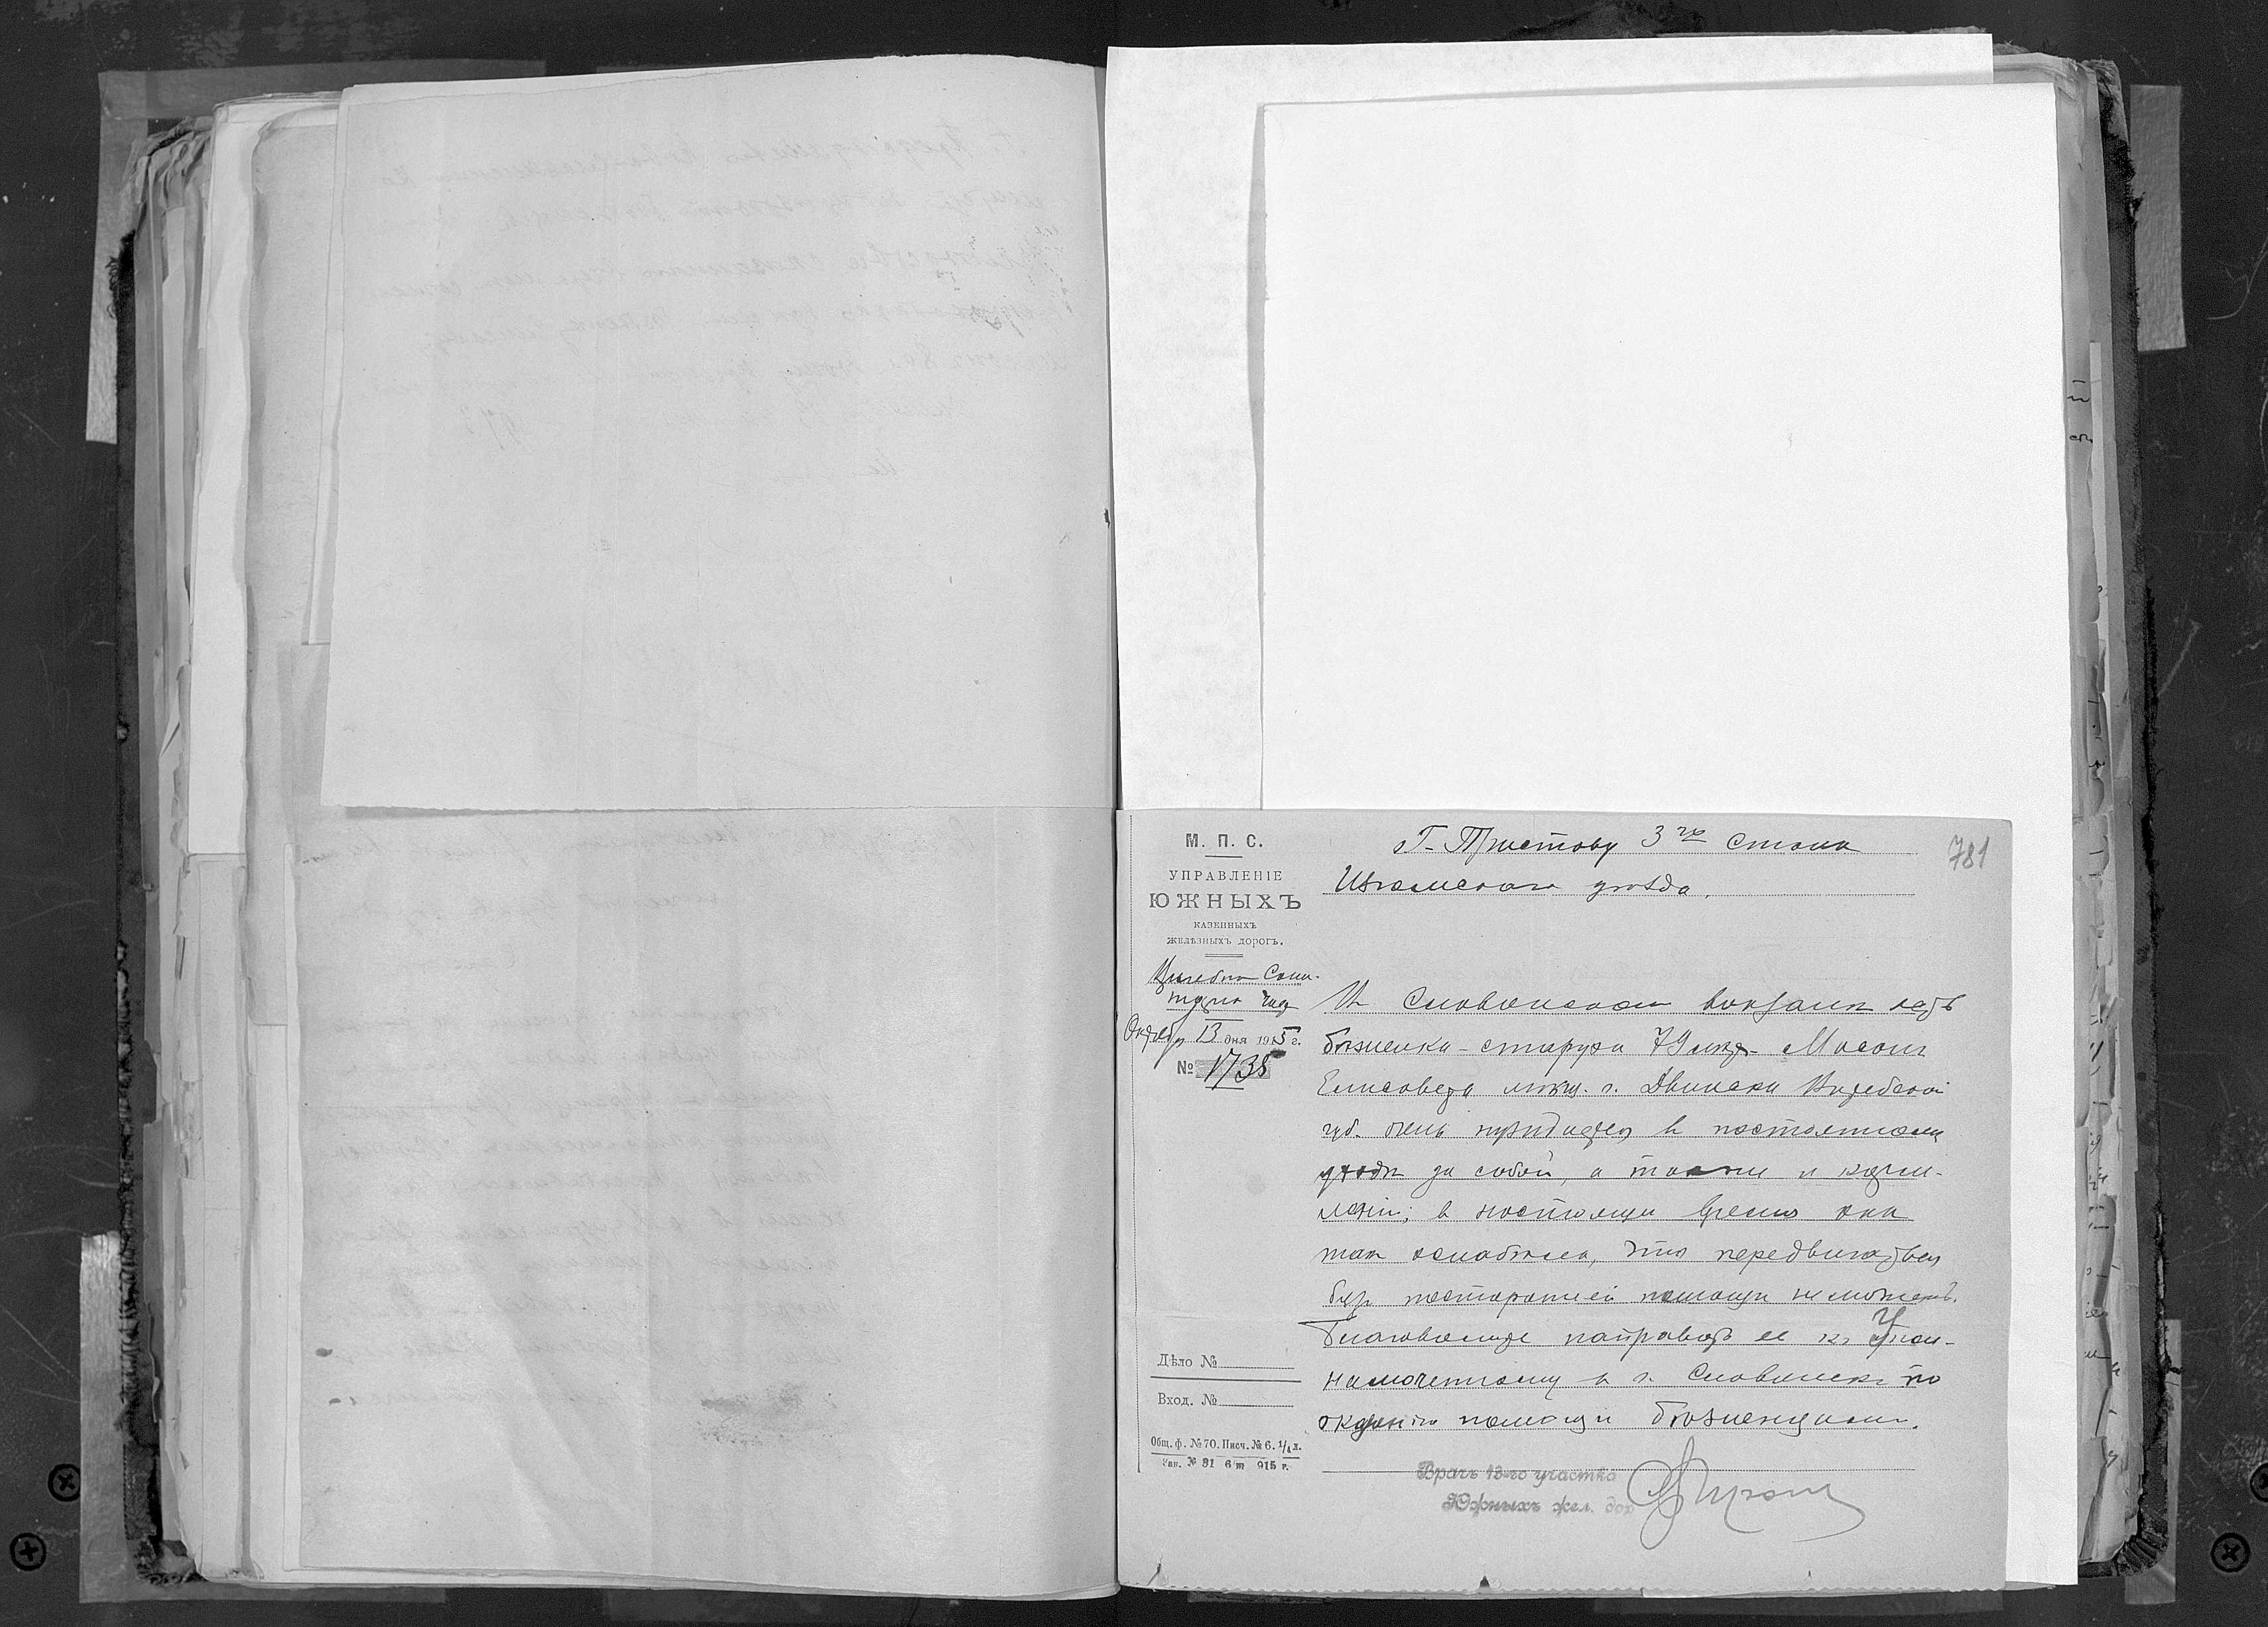 781
М. П. С.
УПРАВЛЕНІЕ
ЮЖНЫХЪ
КАЗЕННЫХЪ
ЖЕЛѢЗНЫХЪ ДОРОГЪ.
Врачебно-Сани-
Октября 13 дня 1915 г.
№ 1735
Дѣло №
Вход. №
Общ. ф. № 70. Писч. № 6. 1/4 л.
Зак. № 31 6/m 915 г.
Г. Приставу 3го Стана
Изюмскаго уѣзда.
На Славянском вокзалѣ есть
бѣженка - старуха 79 лѣт - Масон
Елисавета мѣщ. г. Двинска Витебской
губ. очень нуждается в постоянном
уходѣ за собой, а также и корм-
леніи; в настоящее время она
так ослабѣла, что передвигаться
без посторонней помощи не может.
Благоволите направить ее к Упол-
намоченному в г. Славянскѣ по
оказанію помощи бѣженцам.
Врачъ 13-го участка
Южныхъ жел. дор